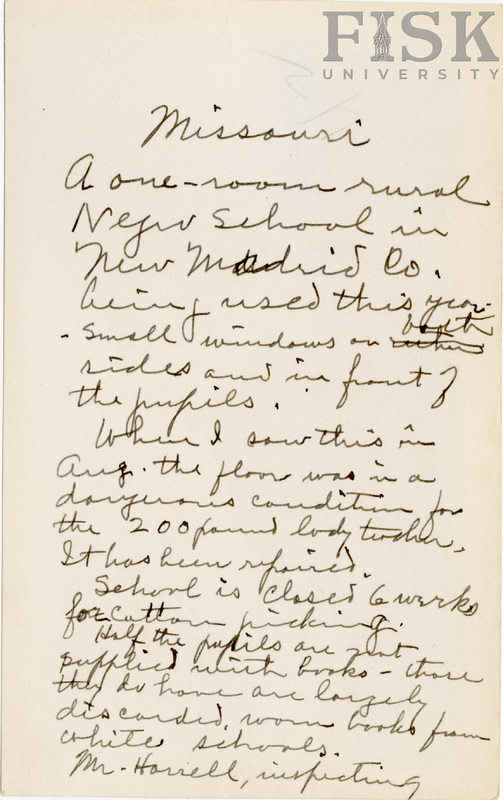 FISK
UNIVERSITY
Missouri
A one-room rural
Negro School in
New Madrid Co.
being used this year-
both
- small windows on either
sides and in front of
the pupils.
When I saw this in
Aug. the floor was in a
dangerous condition for
the 200 pound lady teacher.
It has been repaired.
School is closed 6 weeks
for cotton picking.
Half the pupils are not
supplied with books - those
they do have are largely
discarded, worn books from
white schools.
Mr. Harrell, inspecting